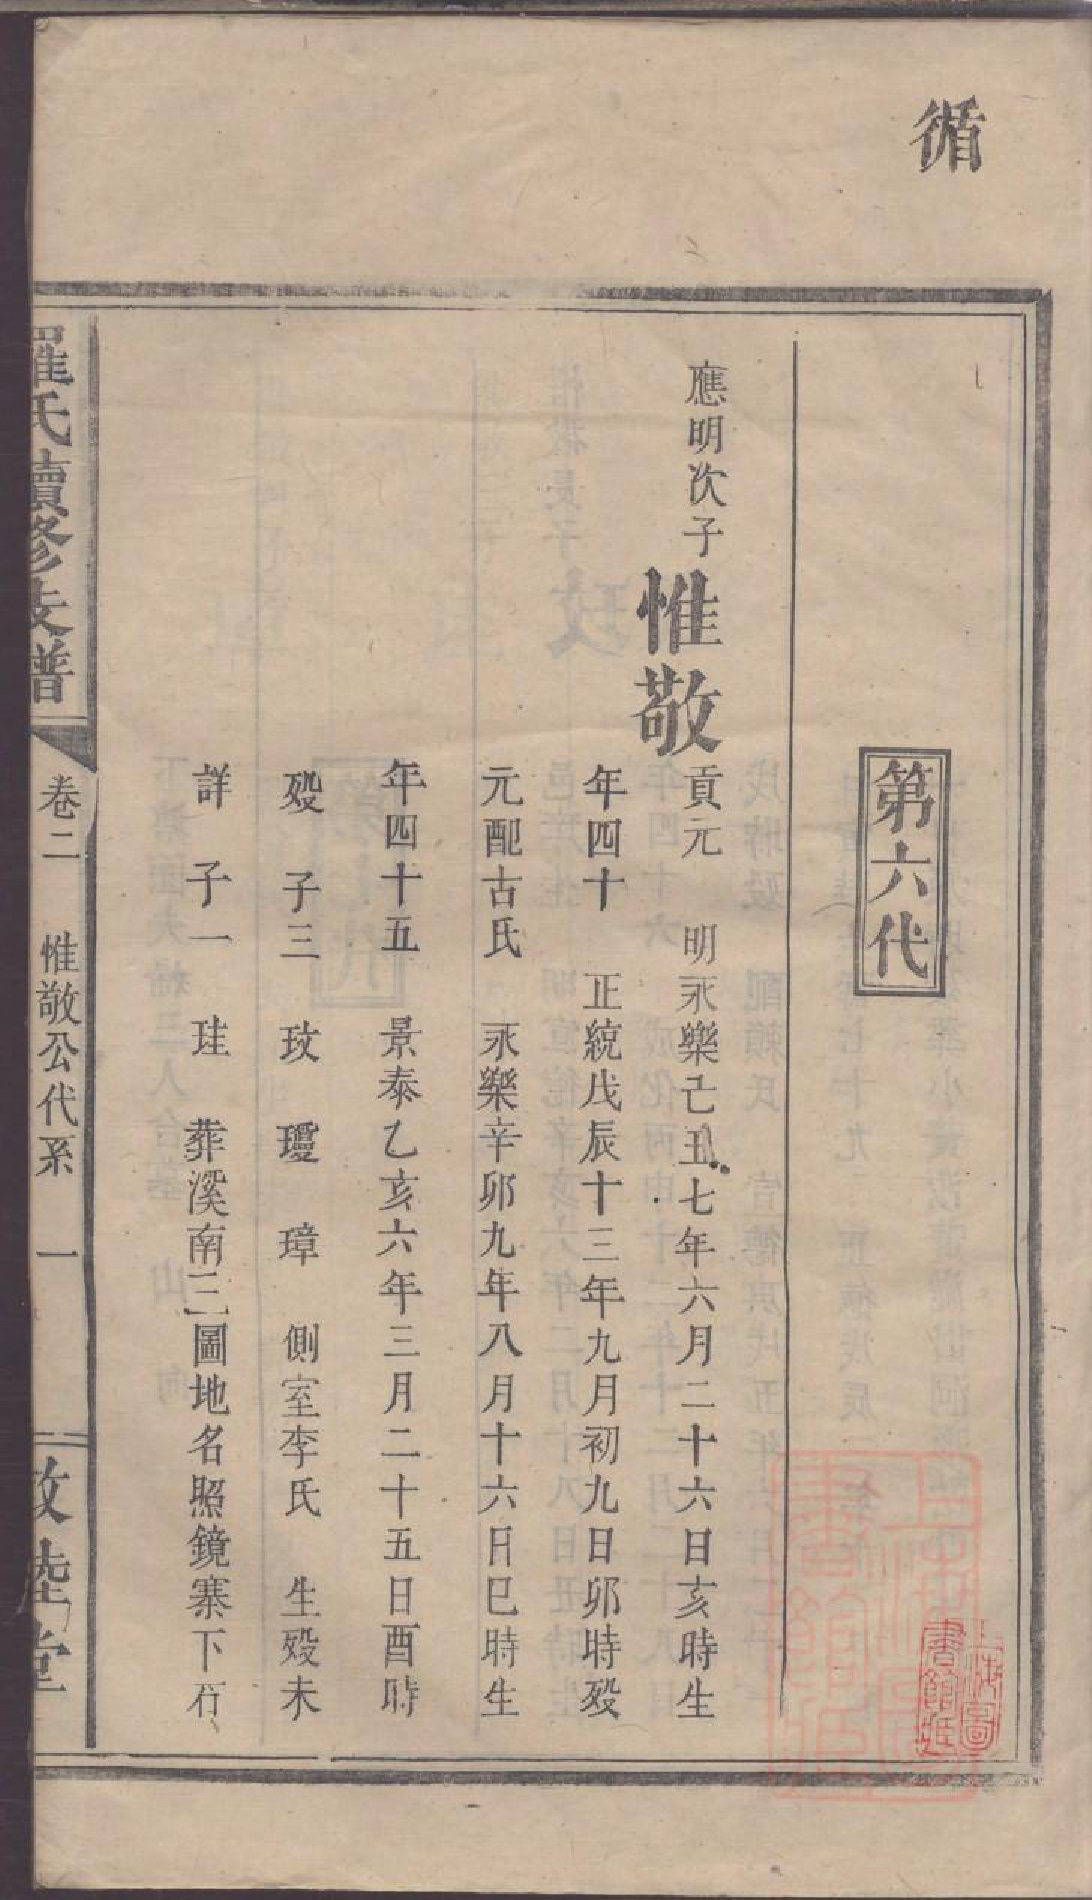 循
第六代
應明次子
惟敬
貢元 明永樂己丑七年六月二十六日亥時生
年四十 正統戊辰十三年九月初九日卯時殁
元配古氏 永樂辛卯九年八月十六日巳時生
年四十五 景泰乙亥六年三月二十五日酉時
殁 子三 玫 瓊 璋 側室李氏 生殁未
詳 子一 珪 葬溪南三圖地名照鏡寨下石
羅氏續修支譜
卷二 惟敬公代系 一
敦睦堂
上海圖書館